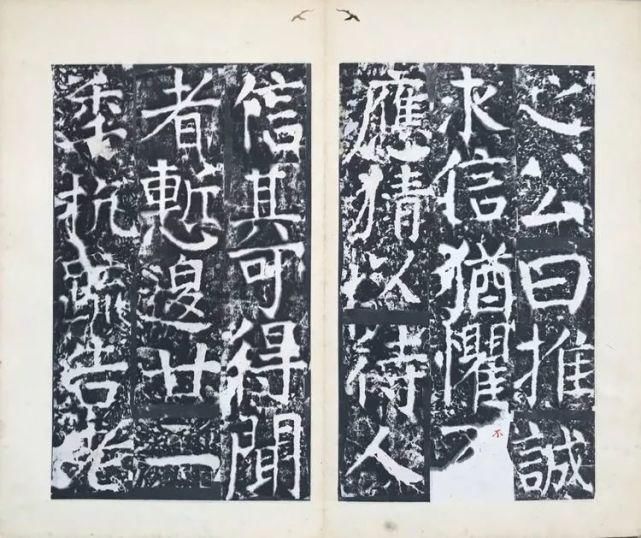 之公曰推誠
求信猶懼不
應猜以待人
信其可得聞
者慙退廿一
秊抗疏告老